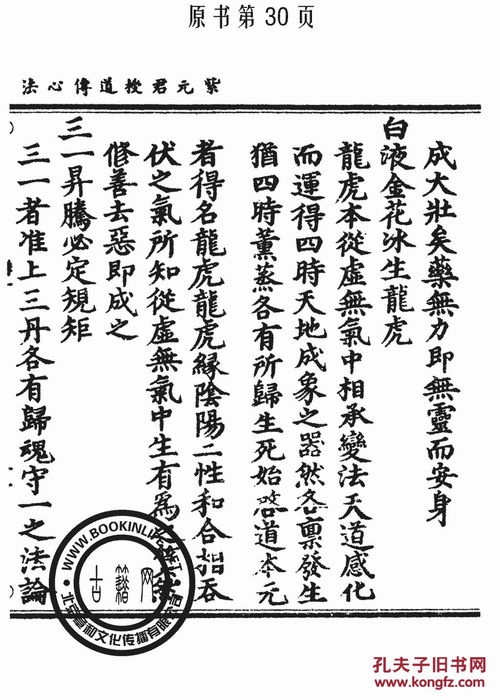 原书第30页
紫元君授道傳心法
成大壯矣藥無力即無靈而安身
白液金花冰生龍虎
龍虎本從虛無氣中相承變法天道感化
而運得四時天地成象之器然各禀發生
猶四時薰蒸各有所歸生死始啓道本元
者得名龍虎龍虎緣陰陽二性和合相吞
伏之氣所知從虛無氣中生有為
修善去惡即成之
三一昇騰必定規矩
三一者准上三丹各有歸魂守一之法論
WWW.BOOKINLIFE
古籍网
文化传播有限公司
孔夫子旧书网
www.kongfz.com